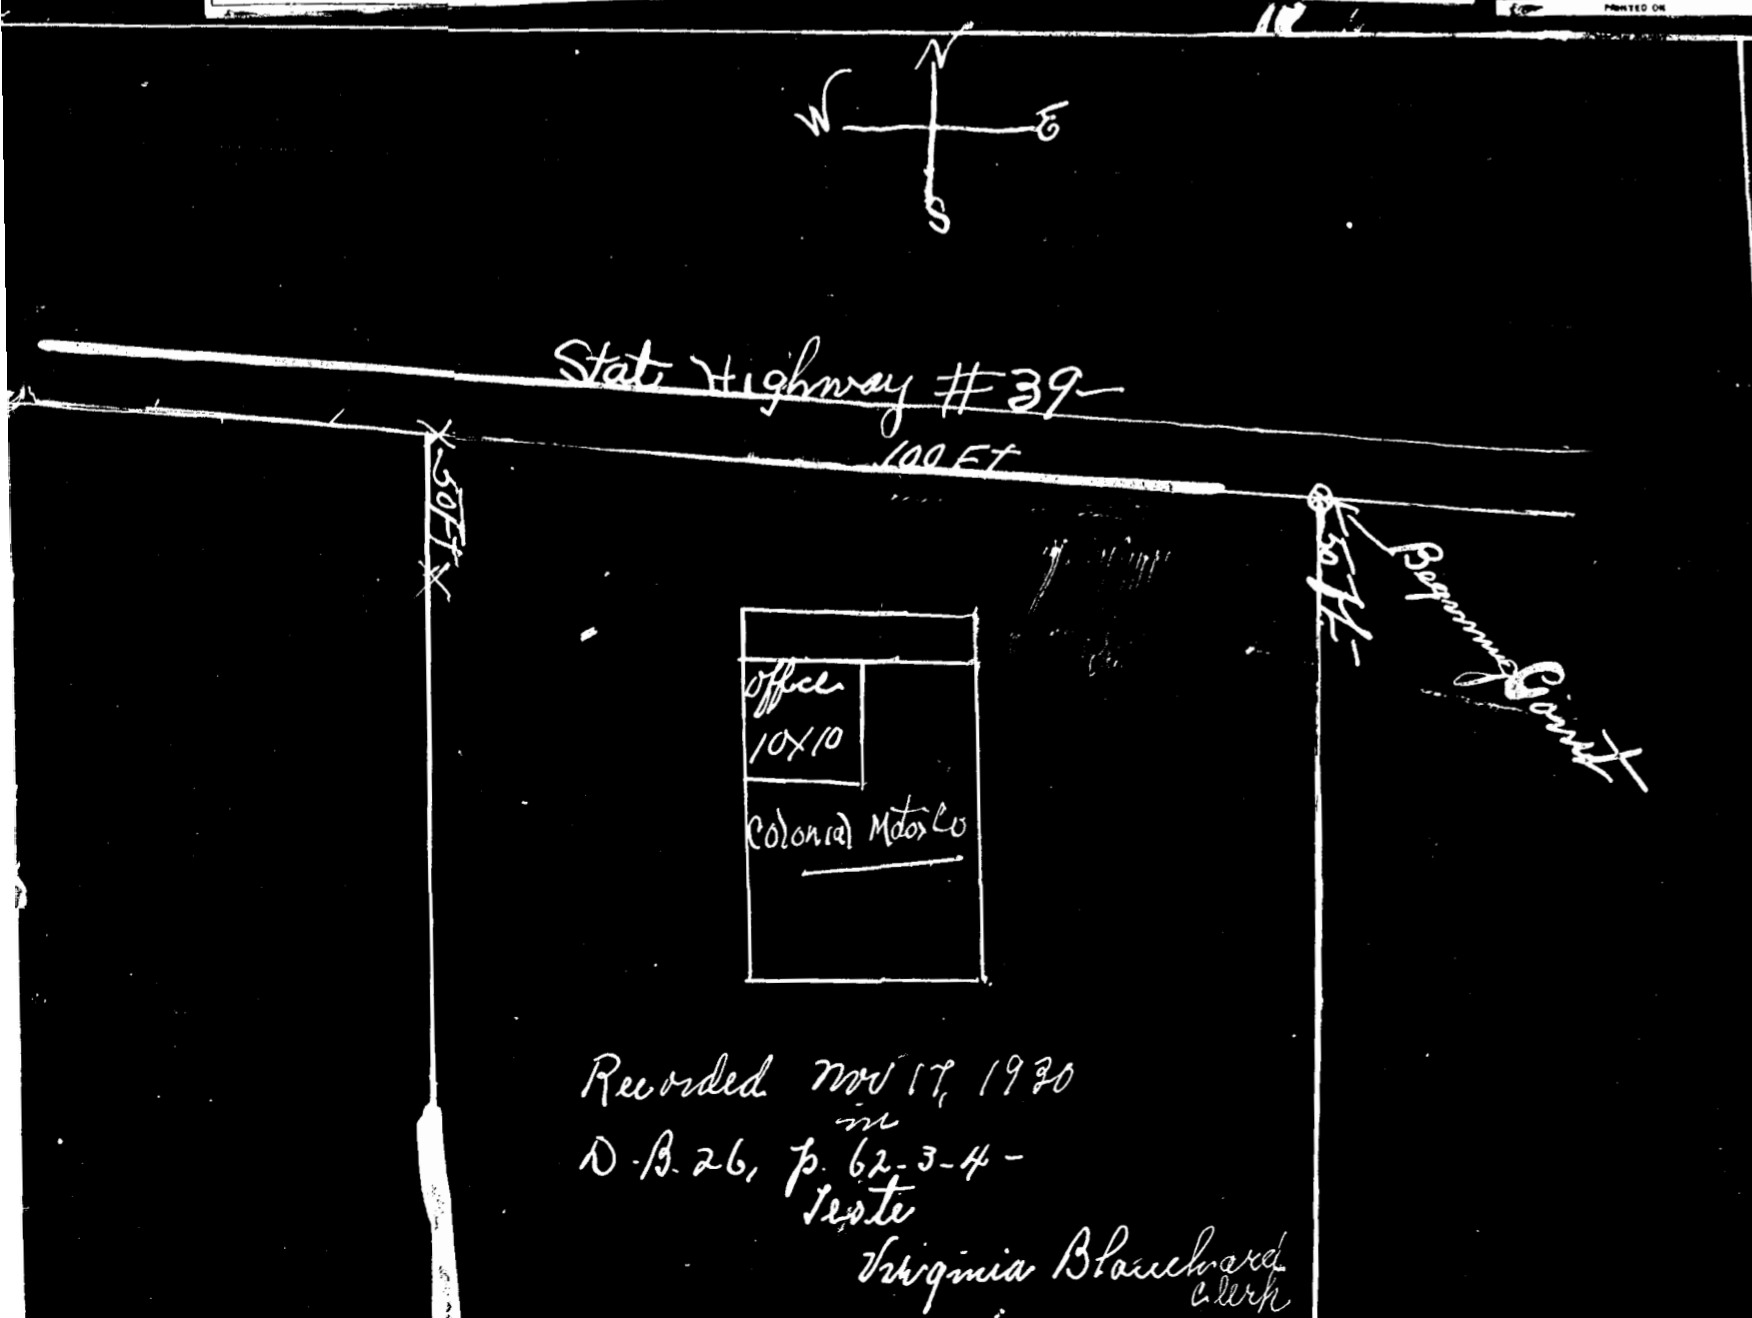 PRINTED ON
N
W E
S
State Highway # 39-
100 FT
50FT
50 Ft-
Beginning Point
Office
10X10
Colonial Motor Co
Recorded Nov 17, 1930
in
D.B. 26, p. 62-3-4-
Teste
Virginia Blanchard
Clerk